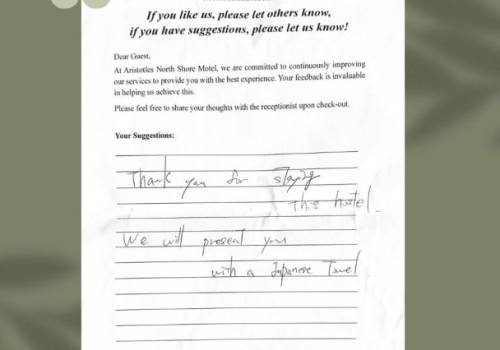 If you like us, please let others know,
if you have suggestions, please let us know!
Dear Guest,
At Aristotles North Shore Motel, we are committed to continuously improving
our services to provide you with the best experience. Your feedback is invaluable
in helping us achieve this.
Please feel free to share your thoughts with the receptionist upon check-out.
Your Suggestions:
Thank you for staying
this hotel.
We will present you
with a Japanese Towel